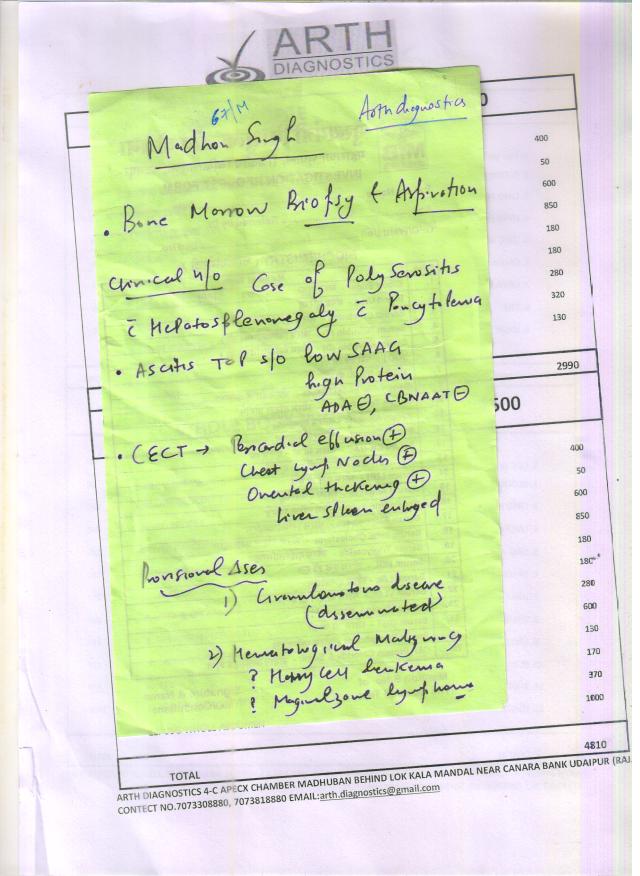 ARTH
DIAGNOSTICS
67/M
Arthdiagnostics
Madhou Singh
• Bone Morrow Biopsy & Aspiration
Clinical H/o Case of Polyserositis
c̄ Hepatosplenomegaly c̄ Pancytopenia
• Ascitis TAP s/o low SAAG
high Protein
ADA ⊖, CBNAAT ⊖
• CECT → Pericardial effusion ⊕
Chest Lymp Nodes ⊕
Omental thickening ⊕
Liver spleen enlarged
Provisional Δses
1) Granulomatous disease
(disseminated)
2) Hematological Malignancy
? Hairy cell leukemia
? Marginal zone lymphoma
0
400
50
600
850
180
180
280
320
130
2990
500
400
50
600
850
180
180
280
600
150
170
370
1000
TOTAL 4810
ARTH DIAGNOSTICS 4-C APECX CHAMBER MADHUBAN BEHIND LOK KALA MANDAL NEAR CANARA BANK UDAIPUR (RAJ.
CONTECT NO.7073308880, 7073818880 EMAIL:arth.diagnostics@gmail.com